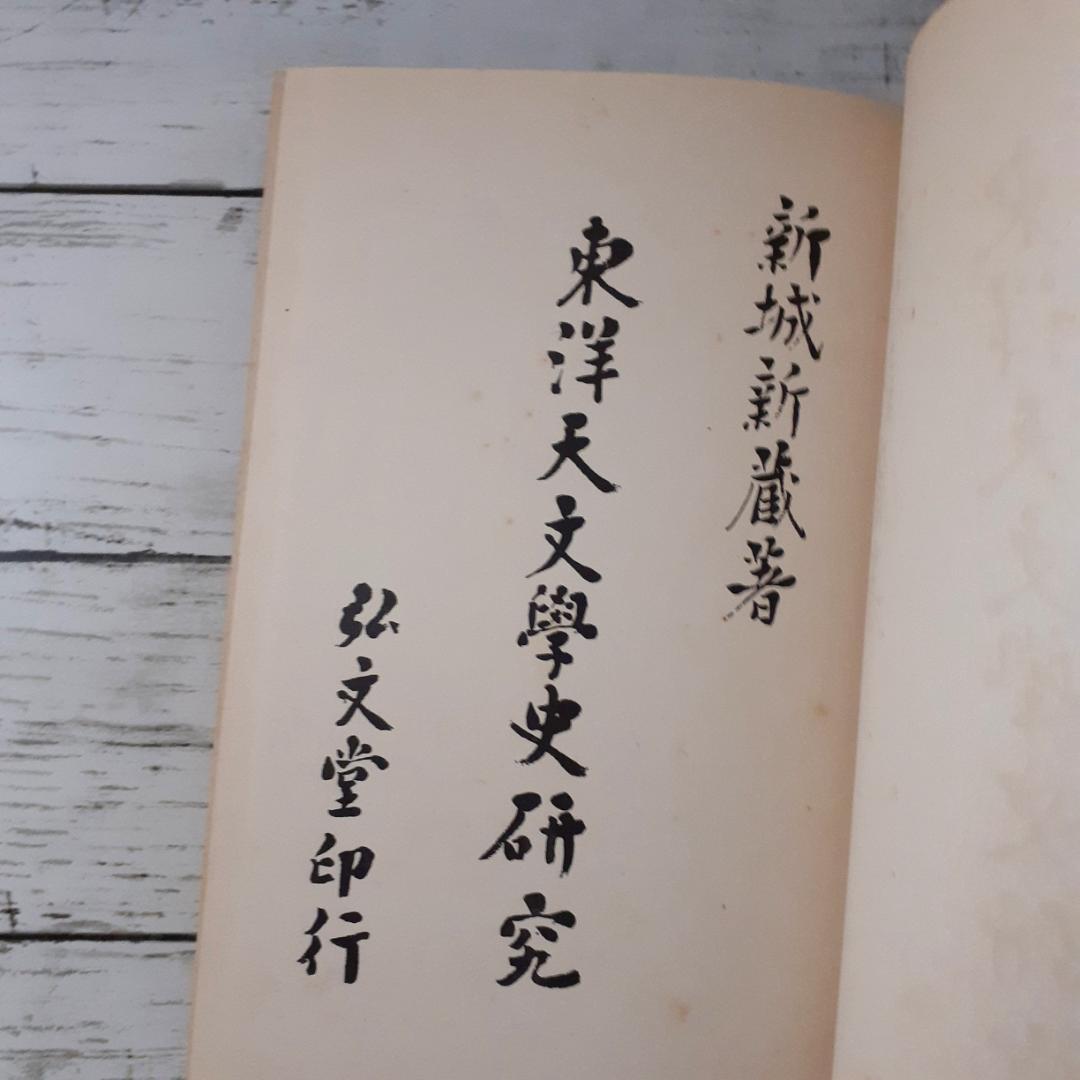 新城新藏著
東洋天文學史研究
弘文堂印行